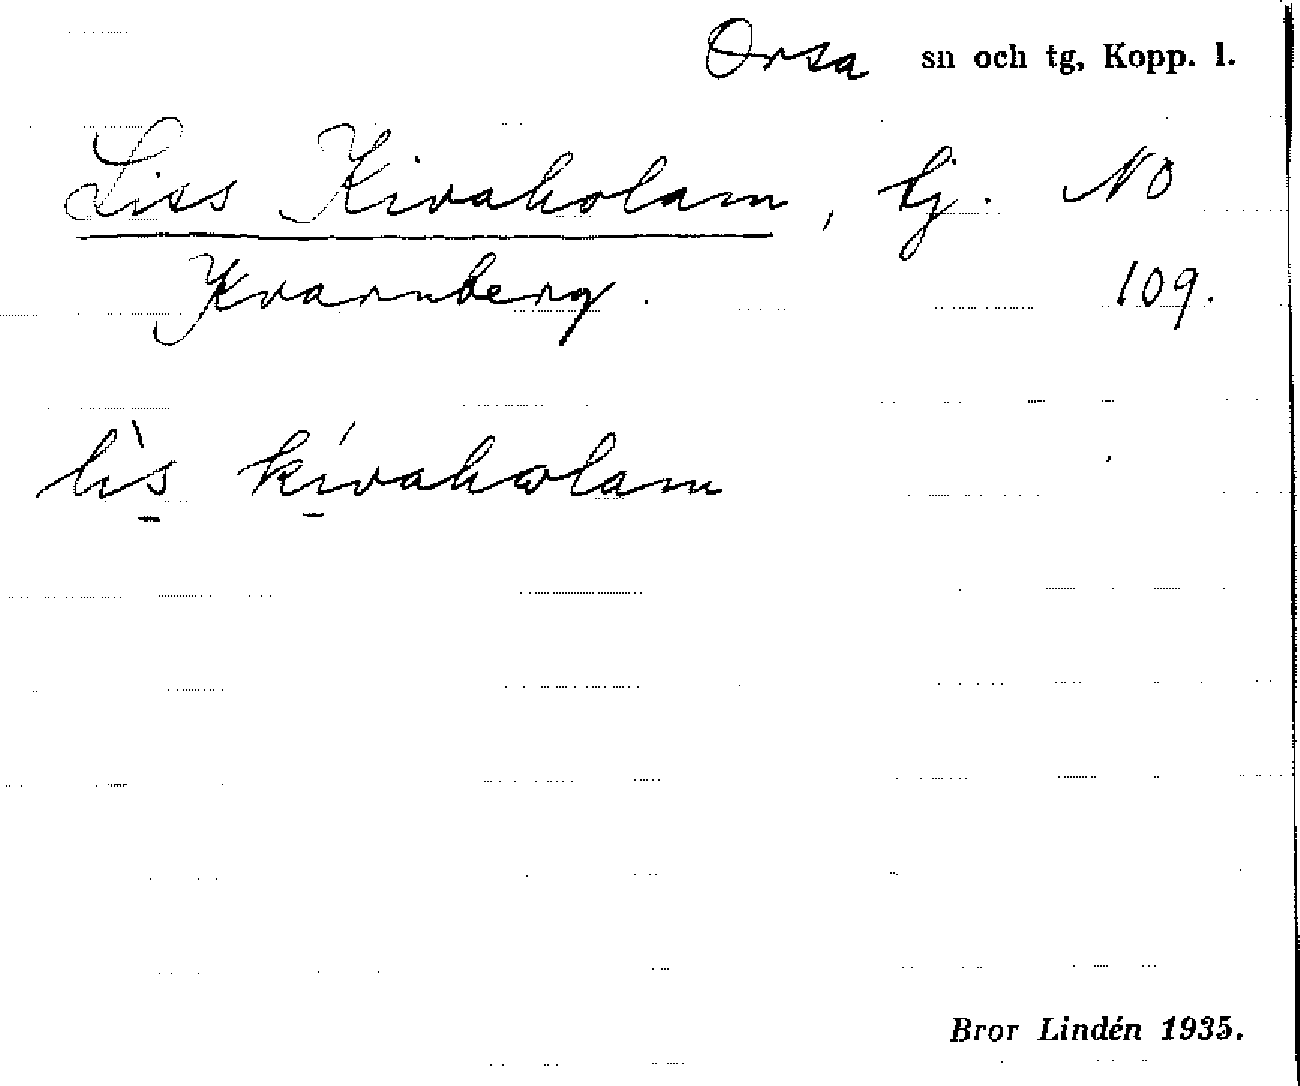 Orsa sn och tg, Kopp. l.
Liss Kivaholam, tj. NO
Kvarnberg. 109.
lìs kívahωlam
Bror Lindén 1935.